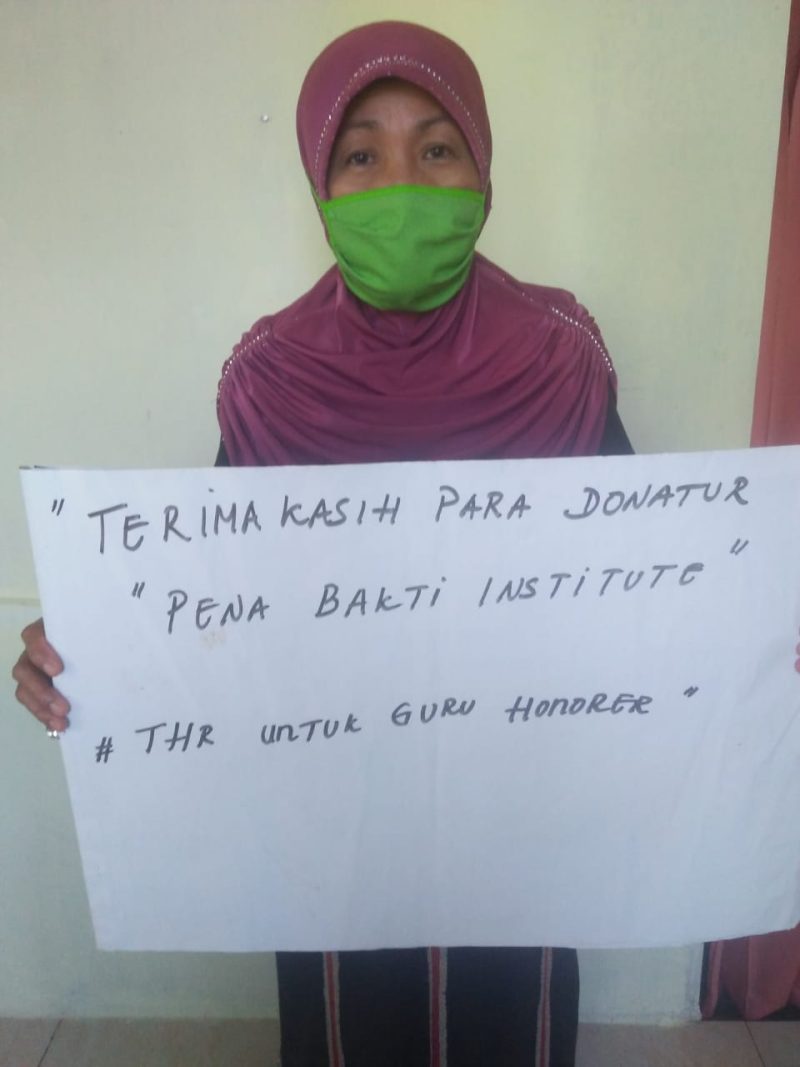 " TERIMA KASIH PARA DONATUR
" PENA BAKTI INSTITUTE "
# THR UNTUK GURU HONORER "